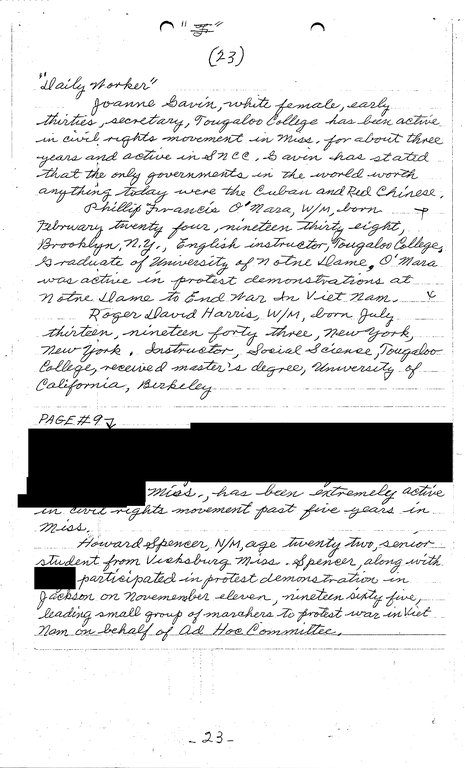 (23)
"Daily Worker"
Joanne Gavin, white female, early
thirties, secretary, Tougaloo College has been active
in civil rights movement in Miss. for about three
years and active in SNCC. Gavin has stated
that the only governments in the world worth
anything today were the Cuban and Red Chinese.
Phillip Francis O'Mara, W/M, born
February twenty four, nineteen thirty eight,
Brooklyn, N.Y., English instructor, Tougaloo College,
Graduate of University of Notre Dame, O'Mara
was active in protest demonstrations at
Notre Dame to End War In Viet Nam.
Roger David Harris, W/M, born July
thirteen, nineteen forty three, New York,
New York. Instructor, Social Science, Tougaloo
College, received master's degree, University of
California, Berkeley
PAGE #9
Miss., has been extremely active
in civil rights movement past five years in
Miss.
Howard Spencer, N/M, age twenty two, senior
student from Vicksburg Miss. Spencer, along with
participated in protest demonstration in
Jackson on Novemember eleven, nineteen sixty five,
leading small group of marchers to protest war in Viet
Nam on behalf of Ad Hoc Committee.
-23-